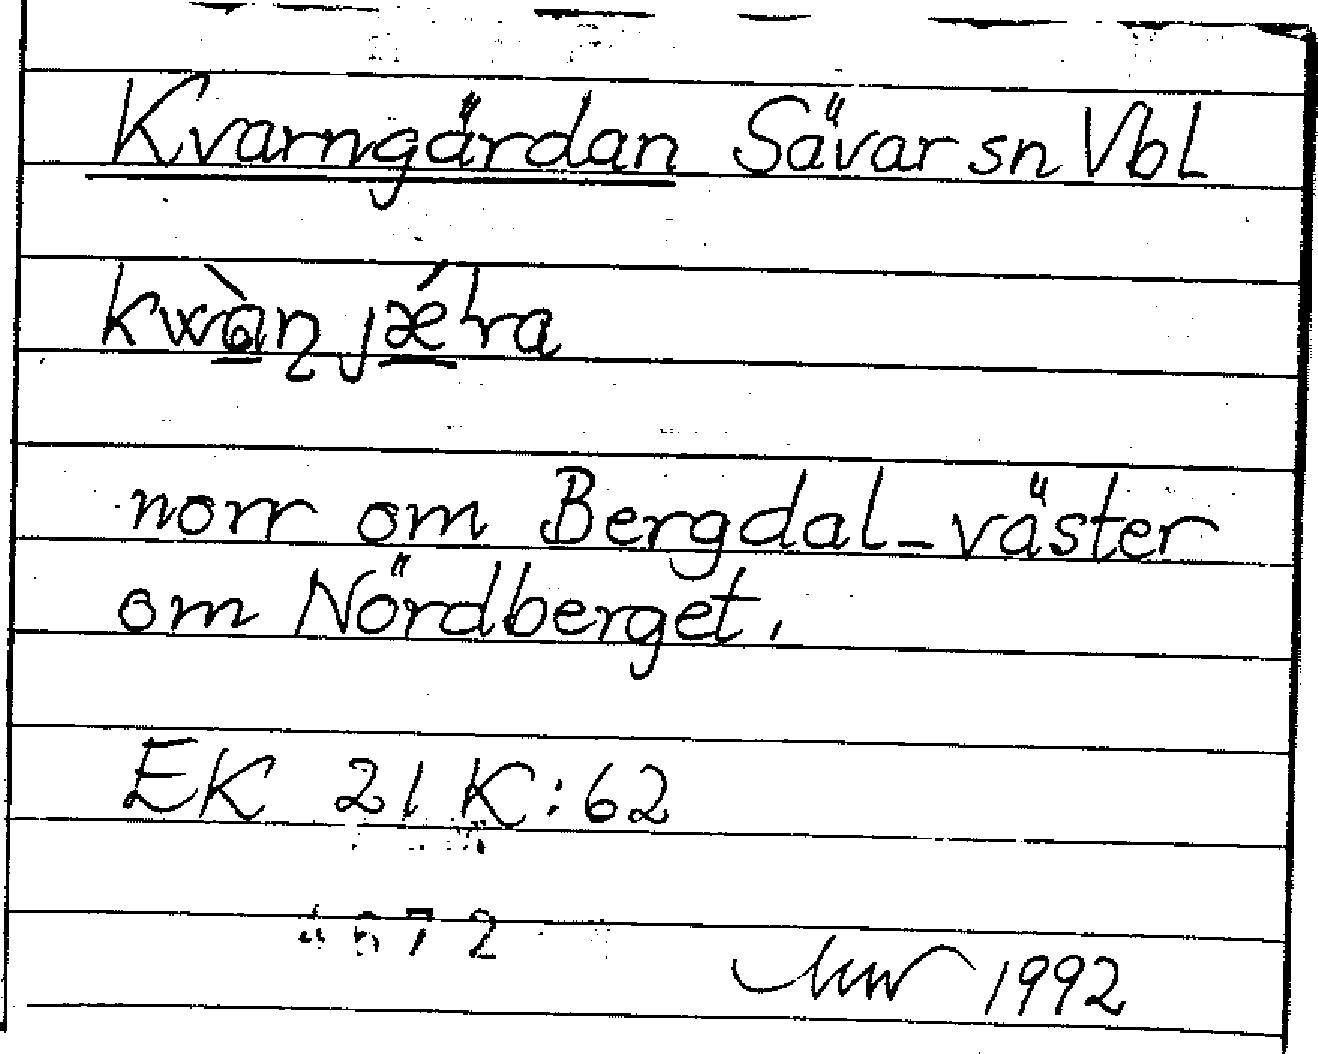 Kvarngärdan Sävar sn Vbl
norr om Bergdal - väster
om Nördberget.
EK 21 K:62
1992